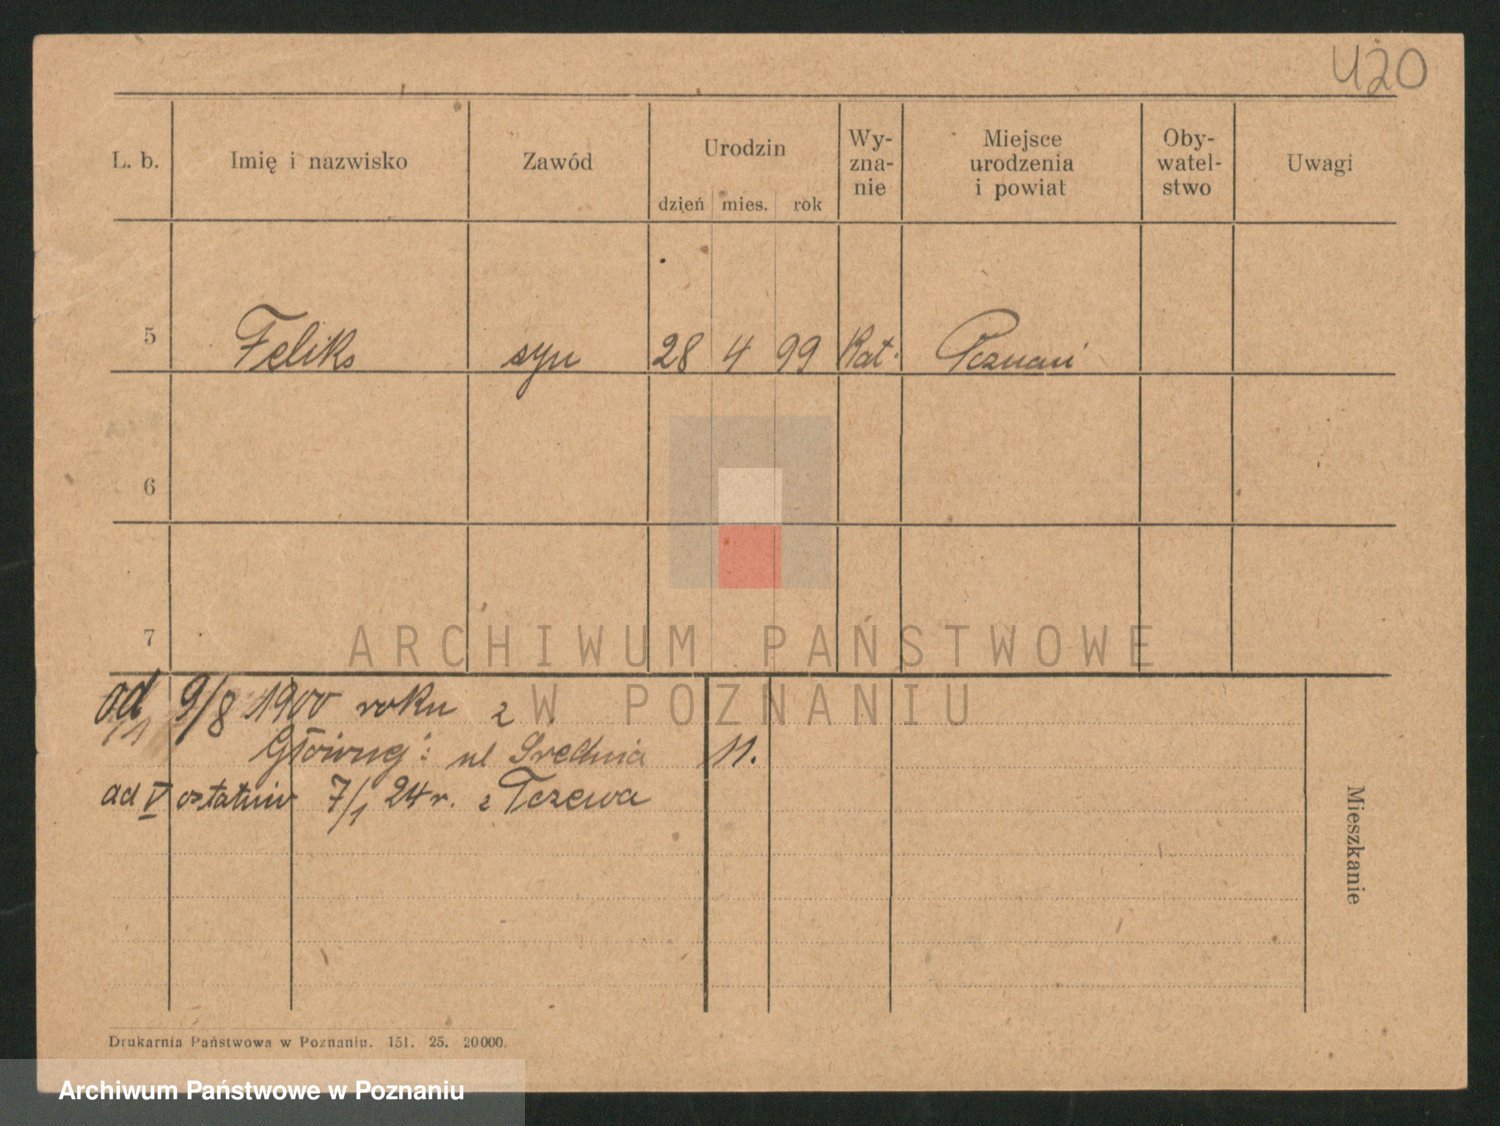 420
L. b. Imię i nazwisko Zawód Urodzin Wy-zna-nie Miejsce urodzenia i powiat Oby-watel-stwo Uwagi
dzień mies. rok
5 Feliks syn 28 4 99 Kat. Poznań
6
7
ARCHIWUM PAŃSTWOWE
W POZNANIU
od 9/8 1900 roku z
ul Średnia 11.
od V ostatnio 7/1 24 r. z Tczewa
Mieszkanie
Drukarnia Państwowa w Poznaniu. 151. 25. 20000.
Archiwum Państwowe w Poznaniu